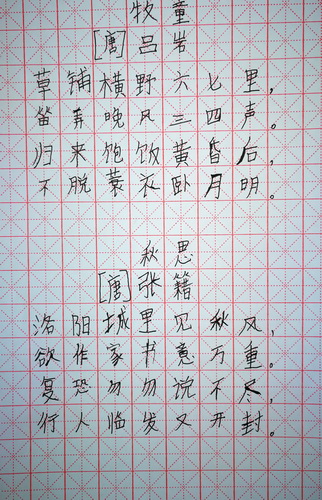 牧童
[唐]吕岩
草铺横野六七里,
笛弄晚风三四声。
归来饱饭黄昏后,
不脱蓑衣卧月明。
秋思
[唐]张籍
洛阳城里见秋风,
欲作家书意万重。
复恐匆匆说不尽,
行人临发又开封。